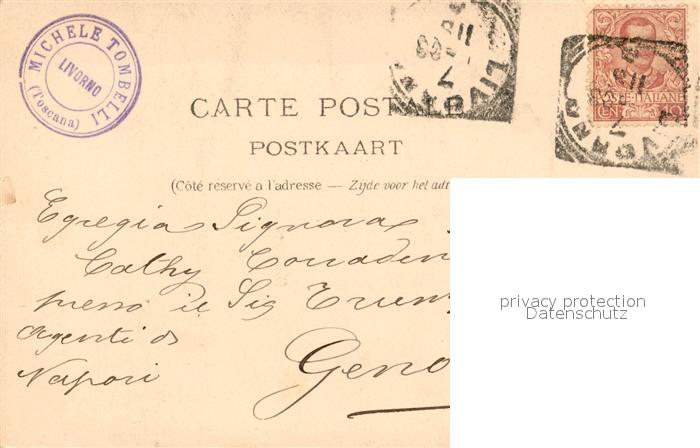 MICHELE TOMBELLI
LIVORNO
(Toscana)
CARTE POSTALE
POSTKAART
(Côté réservé a l'adresse — Zijde voor het adr
POSTE ITALIANE
Egregia Signora
Cathy
presso il Sig
Agenti di
Vapori
Geno
privacy protection
Datenschutz